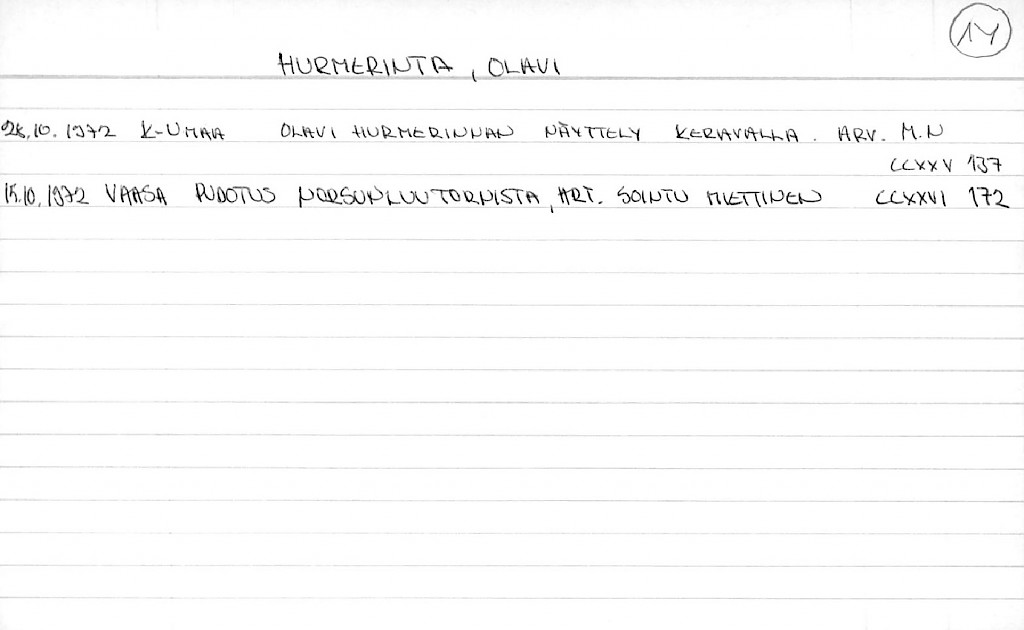 14
HURMERINTA, OLAVI
28.10.1972 K-UMAA OLAVI HURMERINNAN NÄYTTELY KERAVALLA. ARV. M.N
CCXXV 137
15.10.1972 VAASA PUDOTUS NORSUNLUUTORNISTA, ART. SOINTU MIETTINEN CCXXVI 172